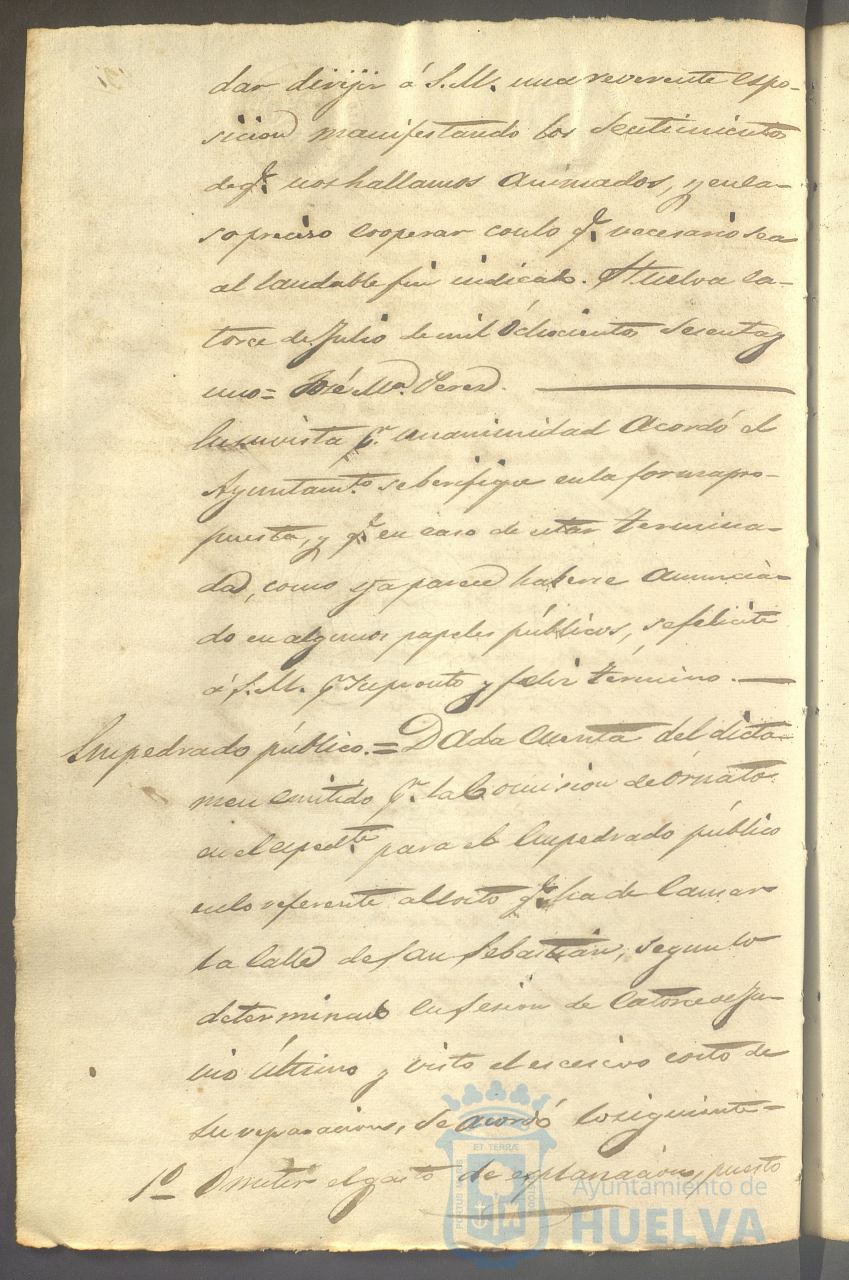 dar dirijir á S.M. una reverente espo-
sicion manifestando los sentimientos
de q.e nos hallamos animados, y en ca-
so preciso cooperar con lo q.e necesario sea
al laudable fin indicado. Huelva ca-
torce de Julio de mil ochocientos sesenta y
uno = José M.a Perez.
En su vista p.r unanimidad acordó el
Ayuntam.to se berifique en la forma pro-
puesta, y q.e en caso de estar termina-
da, como ya parece haberse anuncia-
do en algunos papeles públicos, se felicite
á S.M. p.r su pronto y feliz término.
Empedrado público. = Dada cuenta del dicta-
men emitido p.r la Comision de Ornato
en el exped.te para el Empedrado público
en lo referente al costo q.e ha de causar
la Calle de San Sebastián, segun lo
determinado en sesion de catorce de Ju-
nio último y visto el escesivo costo de
su reparacion, se acordó lo siguiente =
1º Omitir el gasto de esplanacion, puesto
ET TERRÆ
PORTUS MARIS
CUSTODIA
Ayuntamiento de
HUELVA